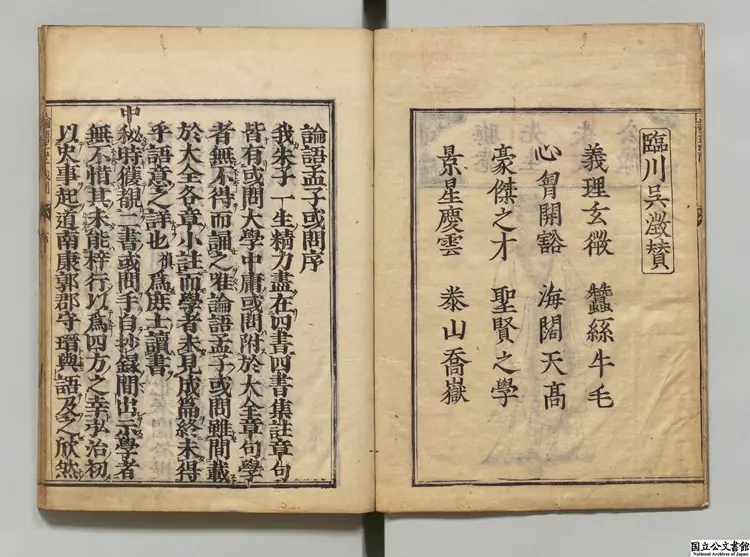 臨川吳澂賛
義理玄微 蠶絲牛毛
心胷開豁 海闊天高
豪傑之才 聖賢之學
景星慶雲 泰山喬嶽
論語孟子或問序
我朱子一生精力盡在四書四書集註章句
皆有或問大學中庸或問附於大全章句學
者無不得而誦之雅論語孟子或問雖間載
於大全各章小註而學者未見成篇終未得
乎語意之詳也 爲庶士讀書
中秘時獲覩二書或問手自抄錄開出示學者
無不惜其未能梓行以爲四方之幸弘治初
以史事起道南康郭郡守瑨與語及之欣然
国立公文書館
National Archives of Japan